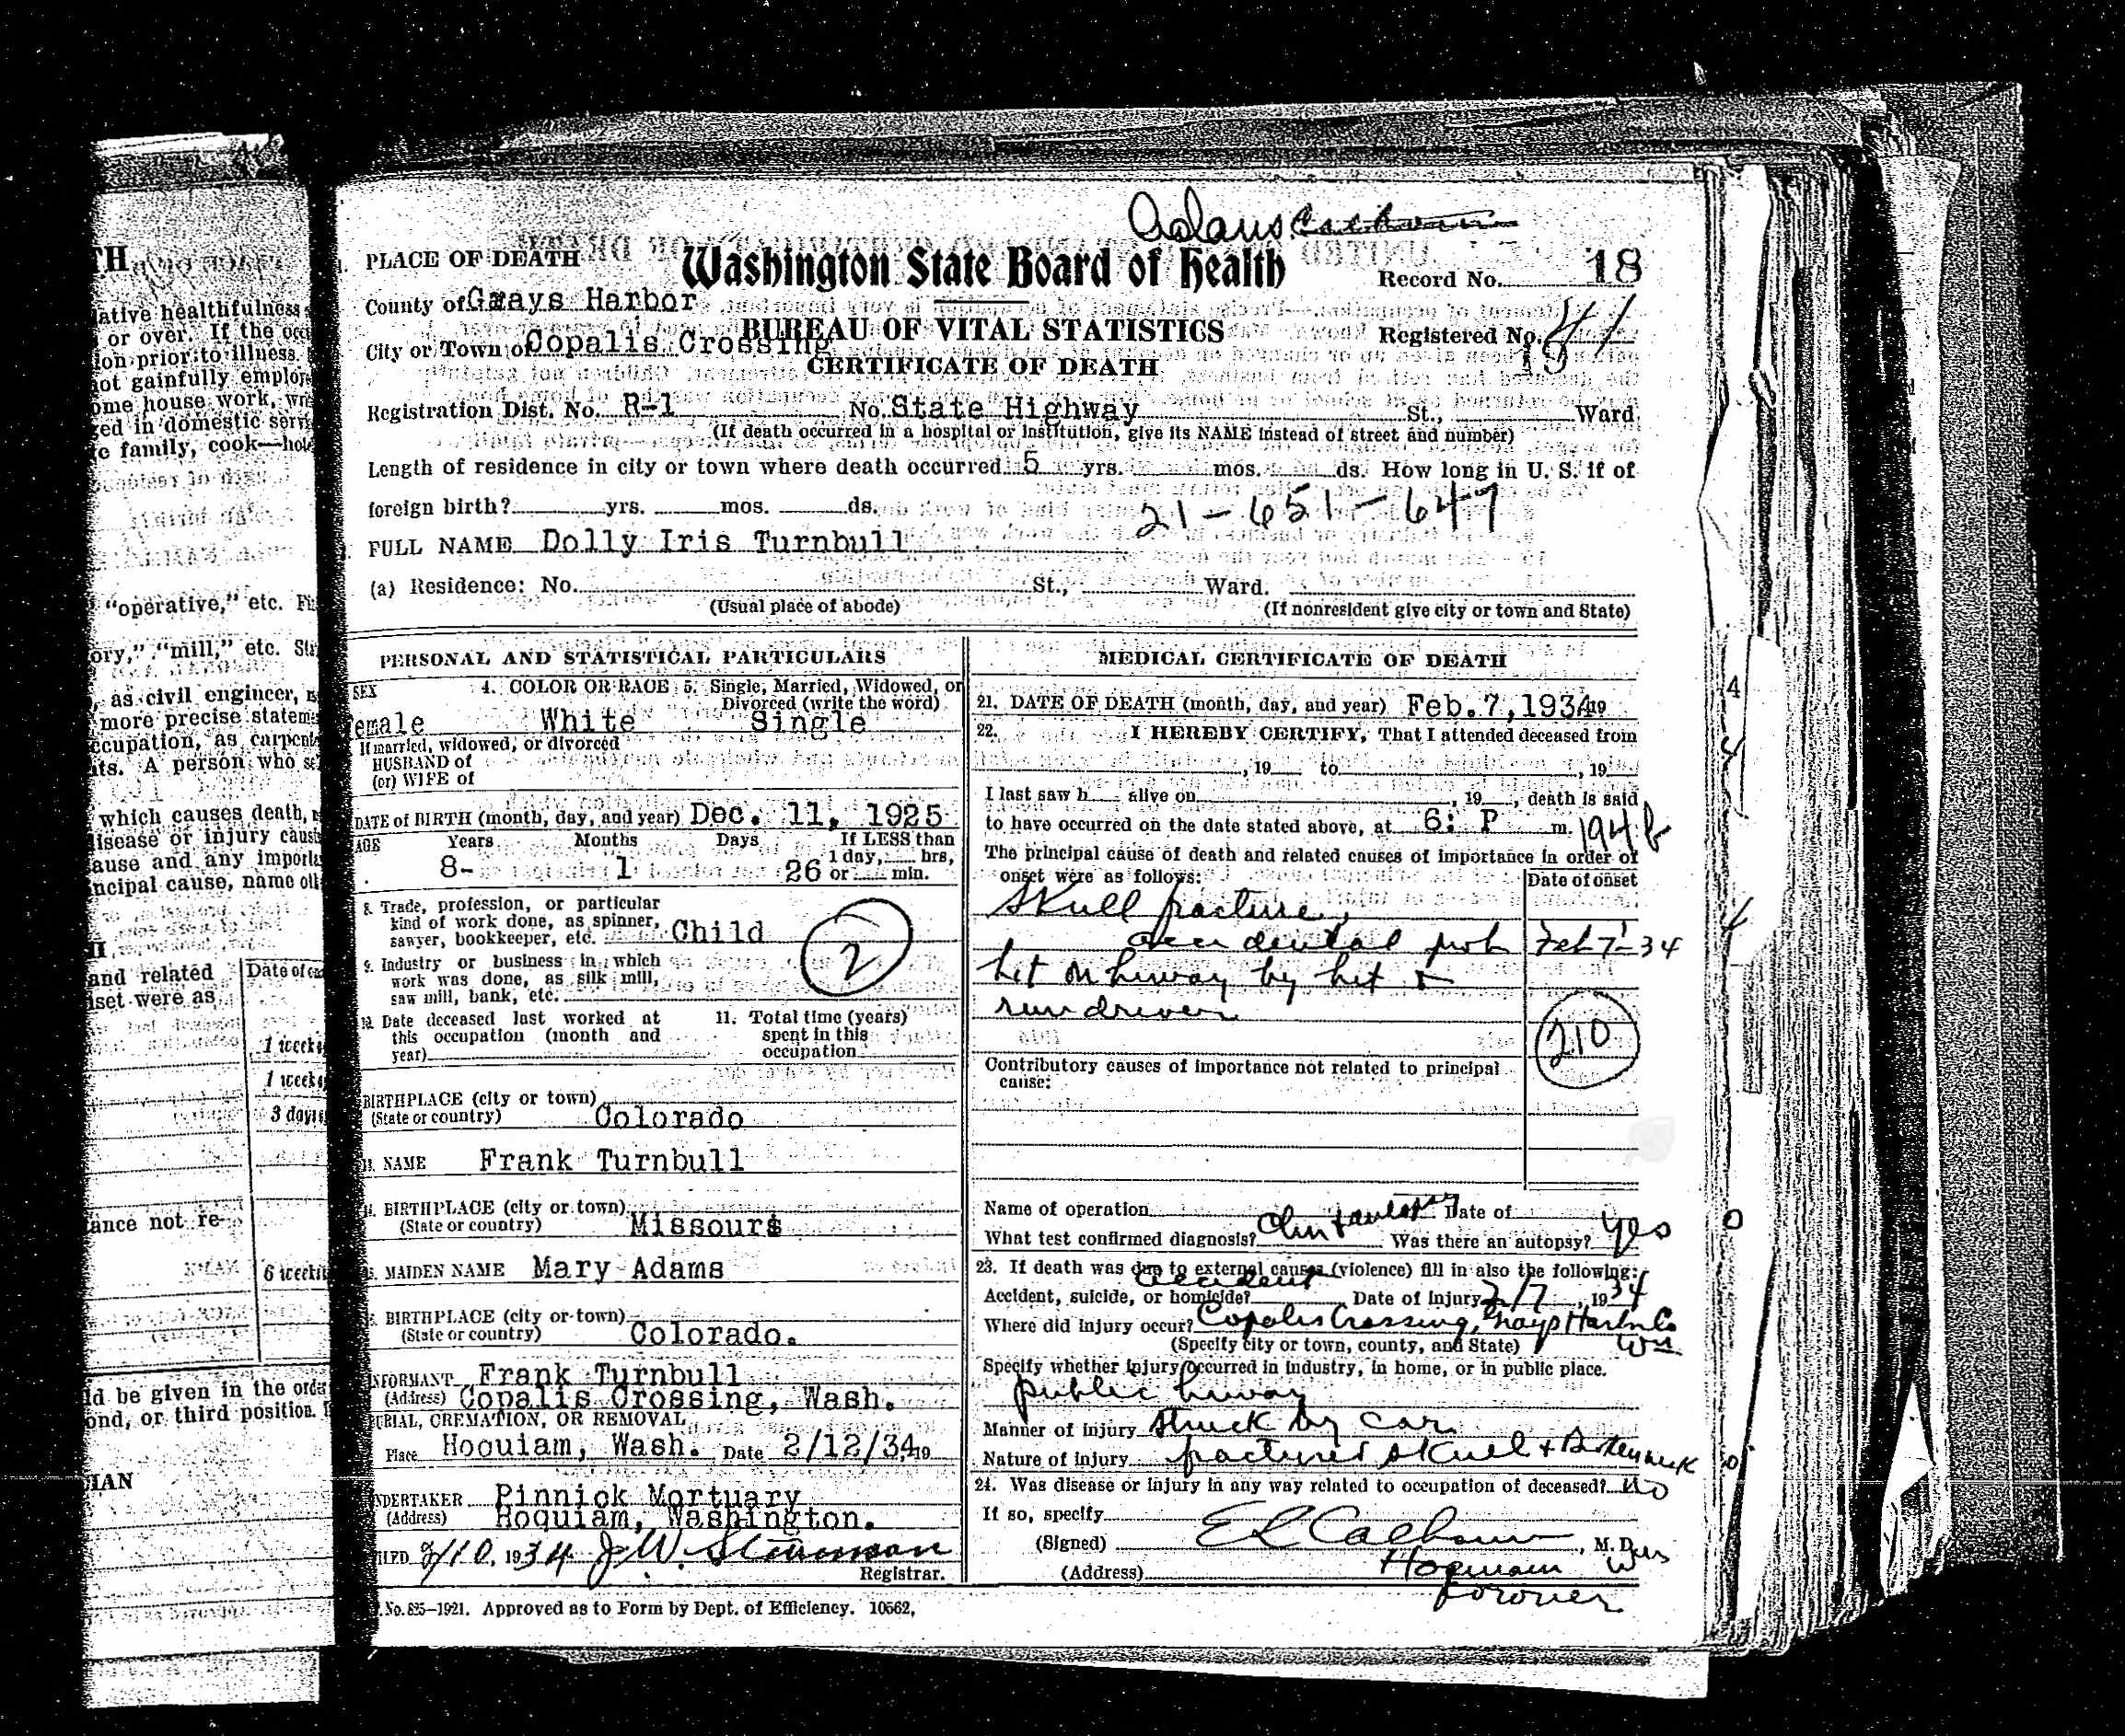 TH
lative healthfulness
or over. If the occu
ion prior to illness.
not gainfully employ
ome house work, wri
ed in domestic serv
e family, cook—hote
"operative," etc.
ory," "mill," etc.
, as civil engineer,
more precise statem
ccupation, as carpent
nts. A person who
which causes death,
disease or injury caus
ause and any importa
ncipal cause, name
and related
nset were as
Date of
1 week
1 week
3 days
ance not re-
6 weeks
ld be given in the orde
ond, or third position.
IAN
Adams Calhoun
PLACE OF DEATH
Washington State Board of Health
Record No. 18
County of Grays Harbor
BUREAU OF VITAL STATISTICS
Registered No. 41
19
City or Town of Copalis Crossing
CERTIFICATE OF DEATH
Registration Dist. No. R-1 No. State Highway St., Ward
(If death occurred in a hospital or institution, give its NAME instead of street and number)
Length of residence in city or town where death occurred 5 yrs. mos. ds. How long in U. S. if of
foreign birth? yrs. mos. ds.
21-651-647
FULL NAME Dolly Iris Turnbull
(a) Residence: No. St., Ward.
(Usual place of abode) (If nonresident give city or town and State)
PERSONAL AND STATISTICAL PARTICULARS
SEX 4. COLOR OR RACE 5. Single, Married, Widowed, or
Divorced (write the word)
emale White Single
If married, widowed, or divorced
HUSBAND of
(or) WIFE of
DATE of BIRTH (month, day, and year) Dec. 11, 1925
AGE Years Months Days If LESS than
1 day, hrs,
8- 1 26 or min.
8. Trade, profession, or particular
kind of work done, as spinner,
sawyer, bookkeeper, etc. Child
2
9. Industry or business in which
work was done, as silk mill,
saw mill, bank, etc.
10. Date deceased last worked at
this occupation (month and
year)
11. Total time (years)
spent in this
occupation
BIRTHPLACE (city or town)
(State or country) Colorado
13. NAME Frank Turnbull
14. BIRTHPLACE (city or town)
(State or country) Missouri
MAIDEN NAME Mary Adams
BIRTHPLACE (city or town)
(State or country) Colorado.
INFORMANT Frank Turnbull
(Address) Copalis Crossing, Wash.
BURIAL, CREMATION, OR REMOVAL
Place Hoquiam, Wash. Date 2/12/34 19
UNDERTAKER Pinnick Mortuary
(Address) Hoquiam, Washington.
FILED 2/10, 1934 J. W.
Registrar.
No. 825—1921. Approved as to Form by Dept. of Efficiency. 10562.
MEDICAL CERTIFICATE OF DEATH
21. DATE OF DEATH (month, day, and year) Feb. 7, 1934 19
22. I HEREBY CERTIFY, That I attended deceased from
, 19 to , 19
I last saw h alive on , 19 , death is said
to have occurred on the date stated above, at 6: P m. 194b
The principal cause of death and related causes of importance in order of
onset were as follows:
Date of onset
Skull fracture,
accidental prob Feb 7-34
hit on hiway by hit &
run driver
210
Contributory causes of importance not related to principal
cause:
Name of operation Date of
What test confirmed diagnosis? Was there an autopsy? yes
23. If death was due to external causes (violence) fill in also the following:
Accident, suicide, or homicide? accident Date of injury 2/7, 1934
Where did injury occur? Copalis Crossing, Grays Harbor Co
(Specify city or town, county, and State) Wn
Specify whether injury occurred in industry, in home, or in public place.
public hiway
Manner of injury struck by car
Nature of injury fractured skull & Broken neck
24. Was disease or injury in any way related to occupation of deceased? No
If so, specify
(Signed) E L Calhoun, M. D.
(Address) Hoquiam Wn
Coroner
4
4
4
0
0